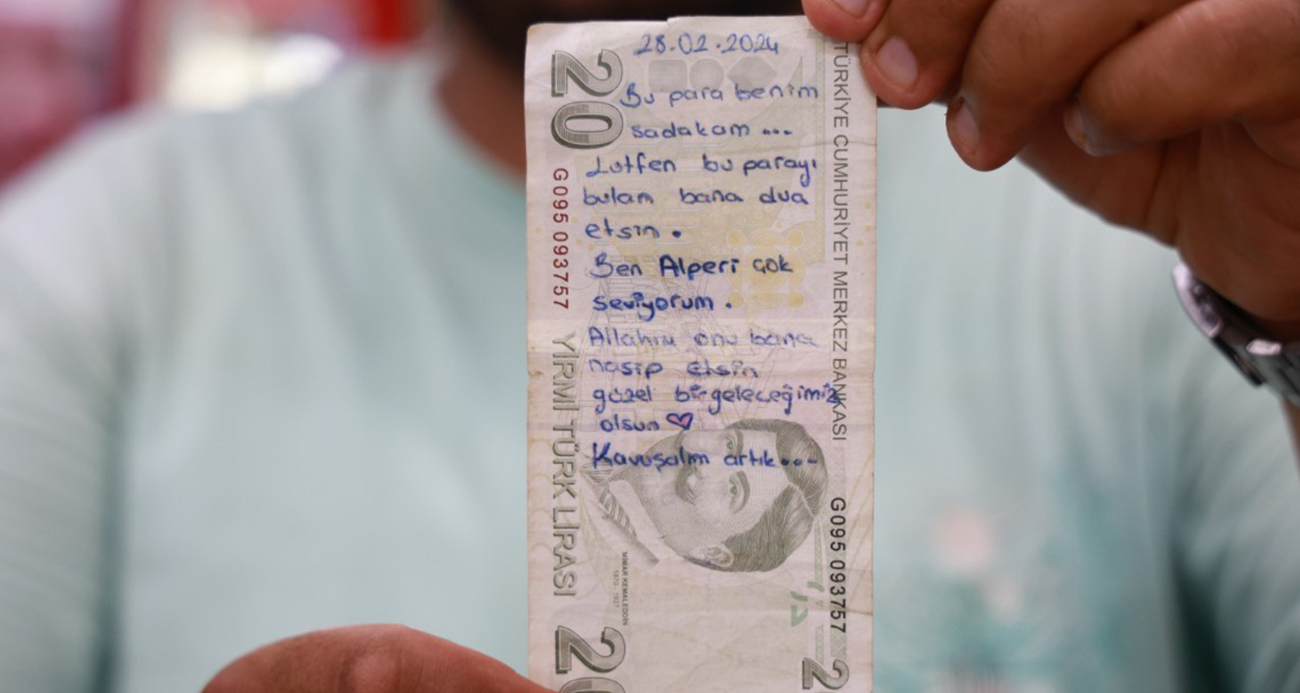 28.02.2024
Bu para benim
sadakam...
Lütfen bu parayı
bulan bana dua
etsin.
Ben Alperi çok
seviyorum.
Allahım onu bana
nasip etsin
güzel bir geleceğimiz
olsun ♡
Kavuşalım artık...
20
G095 093757
YİRMİ TÜRK LİRASI
20
TÜRKİYE CUMHURİYET MERKEZ BANKASI
G095 093757
2
MİMAR KEMALEDDİN
1870 - 1927